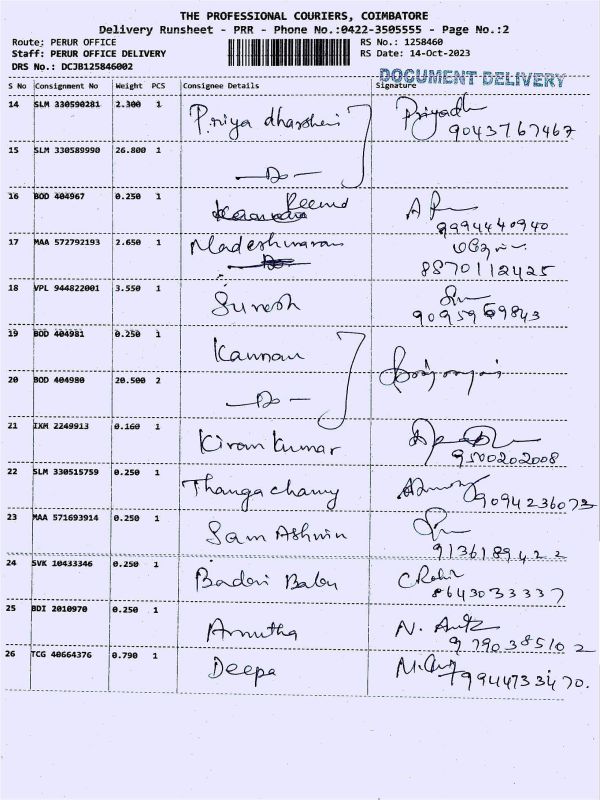 THE PROFESSIONAL COURIERS, COIMBATORE
Delivery Runsheet - PRR - Phone No.:0422-3505555 - Page No.:2
Route; PERUR OFFICE RS No.: 1258460
Staff: PERUR OFFICE DELIVERY RS Date: 14-Oct-2023
DRS No.: DCJB125846002
DOCUMENT DELIVERY
S No Consignment No Weight PCS Consignee Details Signature
14 SLM 330590281 2.300 1 Priya dharsheni Priyadh
9043767467
15 SLM 330589990 26.800 1 — Do —
16 BOD 404967 0.250 1
9994440940
17 MAA 572792193 2.650 1 Madeshwaran
8870112425
18 VPL 944822001 3.550 1 Suresh
19 BOD 404981 0.250 1 Kannan
20 BOD 404980 20.500 2 — Do —
21 IXM 2249913 0.160 1 Kiran Kumar
9500202008
22 SLM 330515759 0.250 1 Thangachamy
9094236073
23 MAA 571693914 0.250 1 Sam Ashwin
9136189422
24 SVK 10433346 0.250 1 Badri Babu
8643033337
25 BDI 2010970 0.250 1 Amutha
9790385102
26 TCG 40664376 0.790 1 Deepa
9944733470.